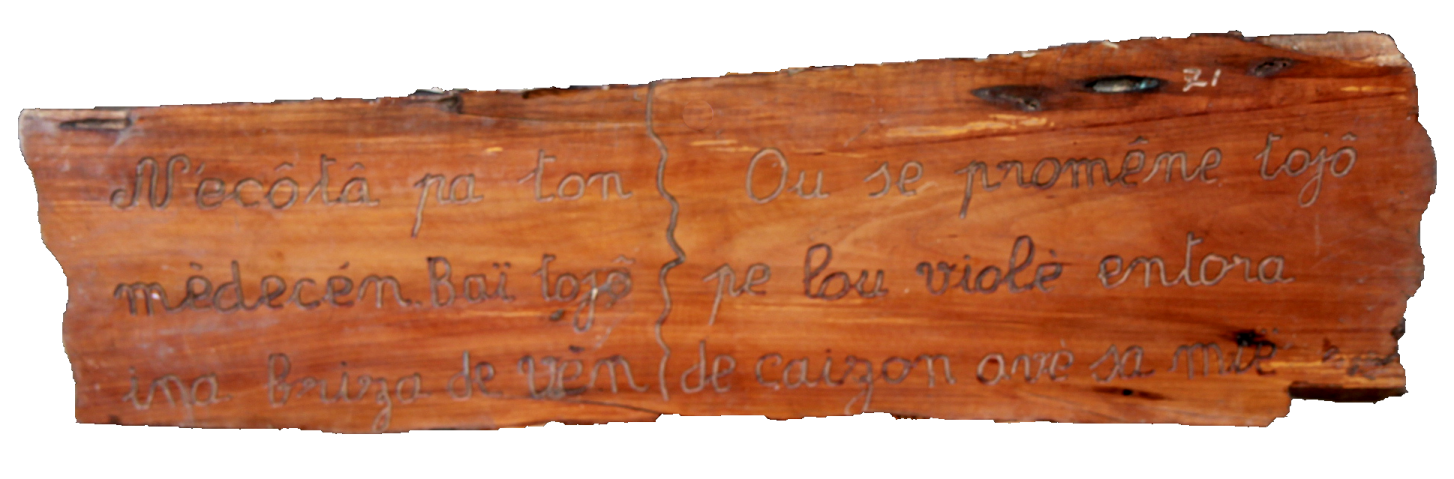 21
N'ecôtâ pa ton
mèdecén. Baï tojô
ina briza de vén
Ou se promêne tojô
pe lou violè entora
de çaizon avè sa mië